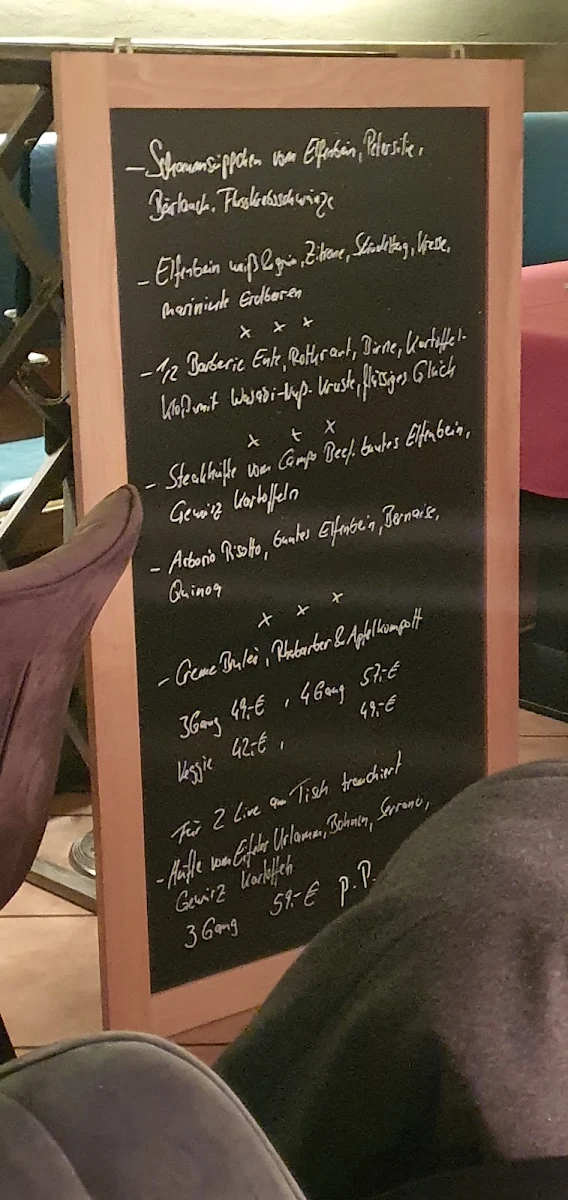 - Schaumsüppchen vom Elfenbein, Petersilie,
Bärlauch, Flusskrebsschwänze
- Elfenbein weiß & grün, Zitrone, Kresse,
marinierte Erdbeeren
x x x
- 1/2 Barberie Ente, Rotkraut, Birne, Kartoffel-
kloß mit Wasabi-Nuß-Kruste, flüssiges Glück
x x x
- Steakhüfte vom Campo Beef, buntes Elfenbein,
Gewürz Kartoffeln
- Arborio Risotto, buntes Elfenbein, Bernaise,
Quinoa
x x x
- Creme Brulei, Rhabarber & Apfelkompott
3 Gang 49,-€ , 4 Gang 57,-€
Veggie 42,-€ , 49,-€
Für 2 Live am Tisch tranchiert
- Hüfte vom Eifeler Urlamm, Bohnen, Serrano,
Gewürz Kartoffeln
3 Gang 59,-€ P.P.